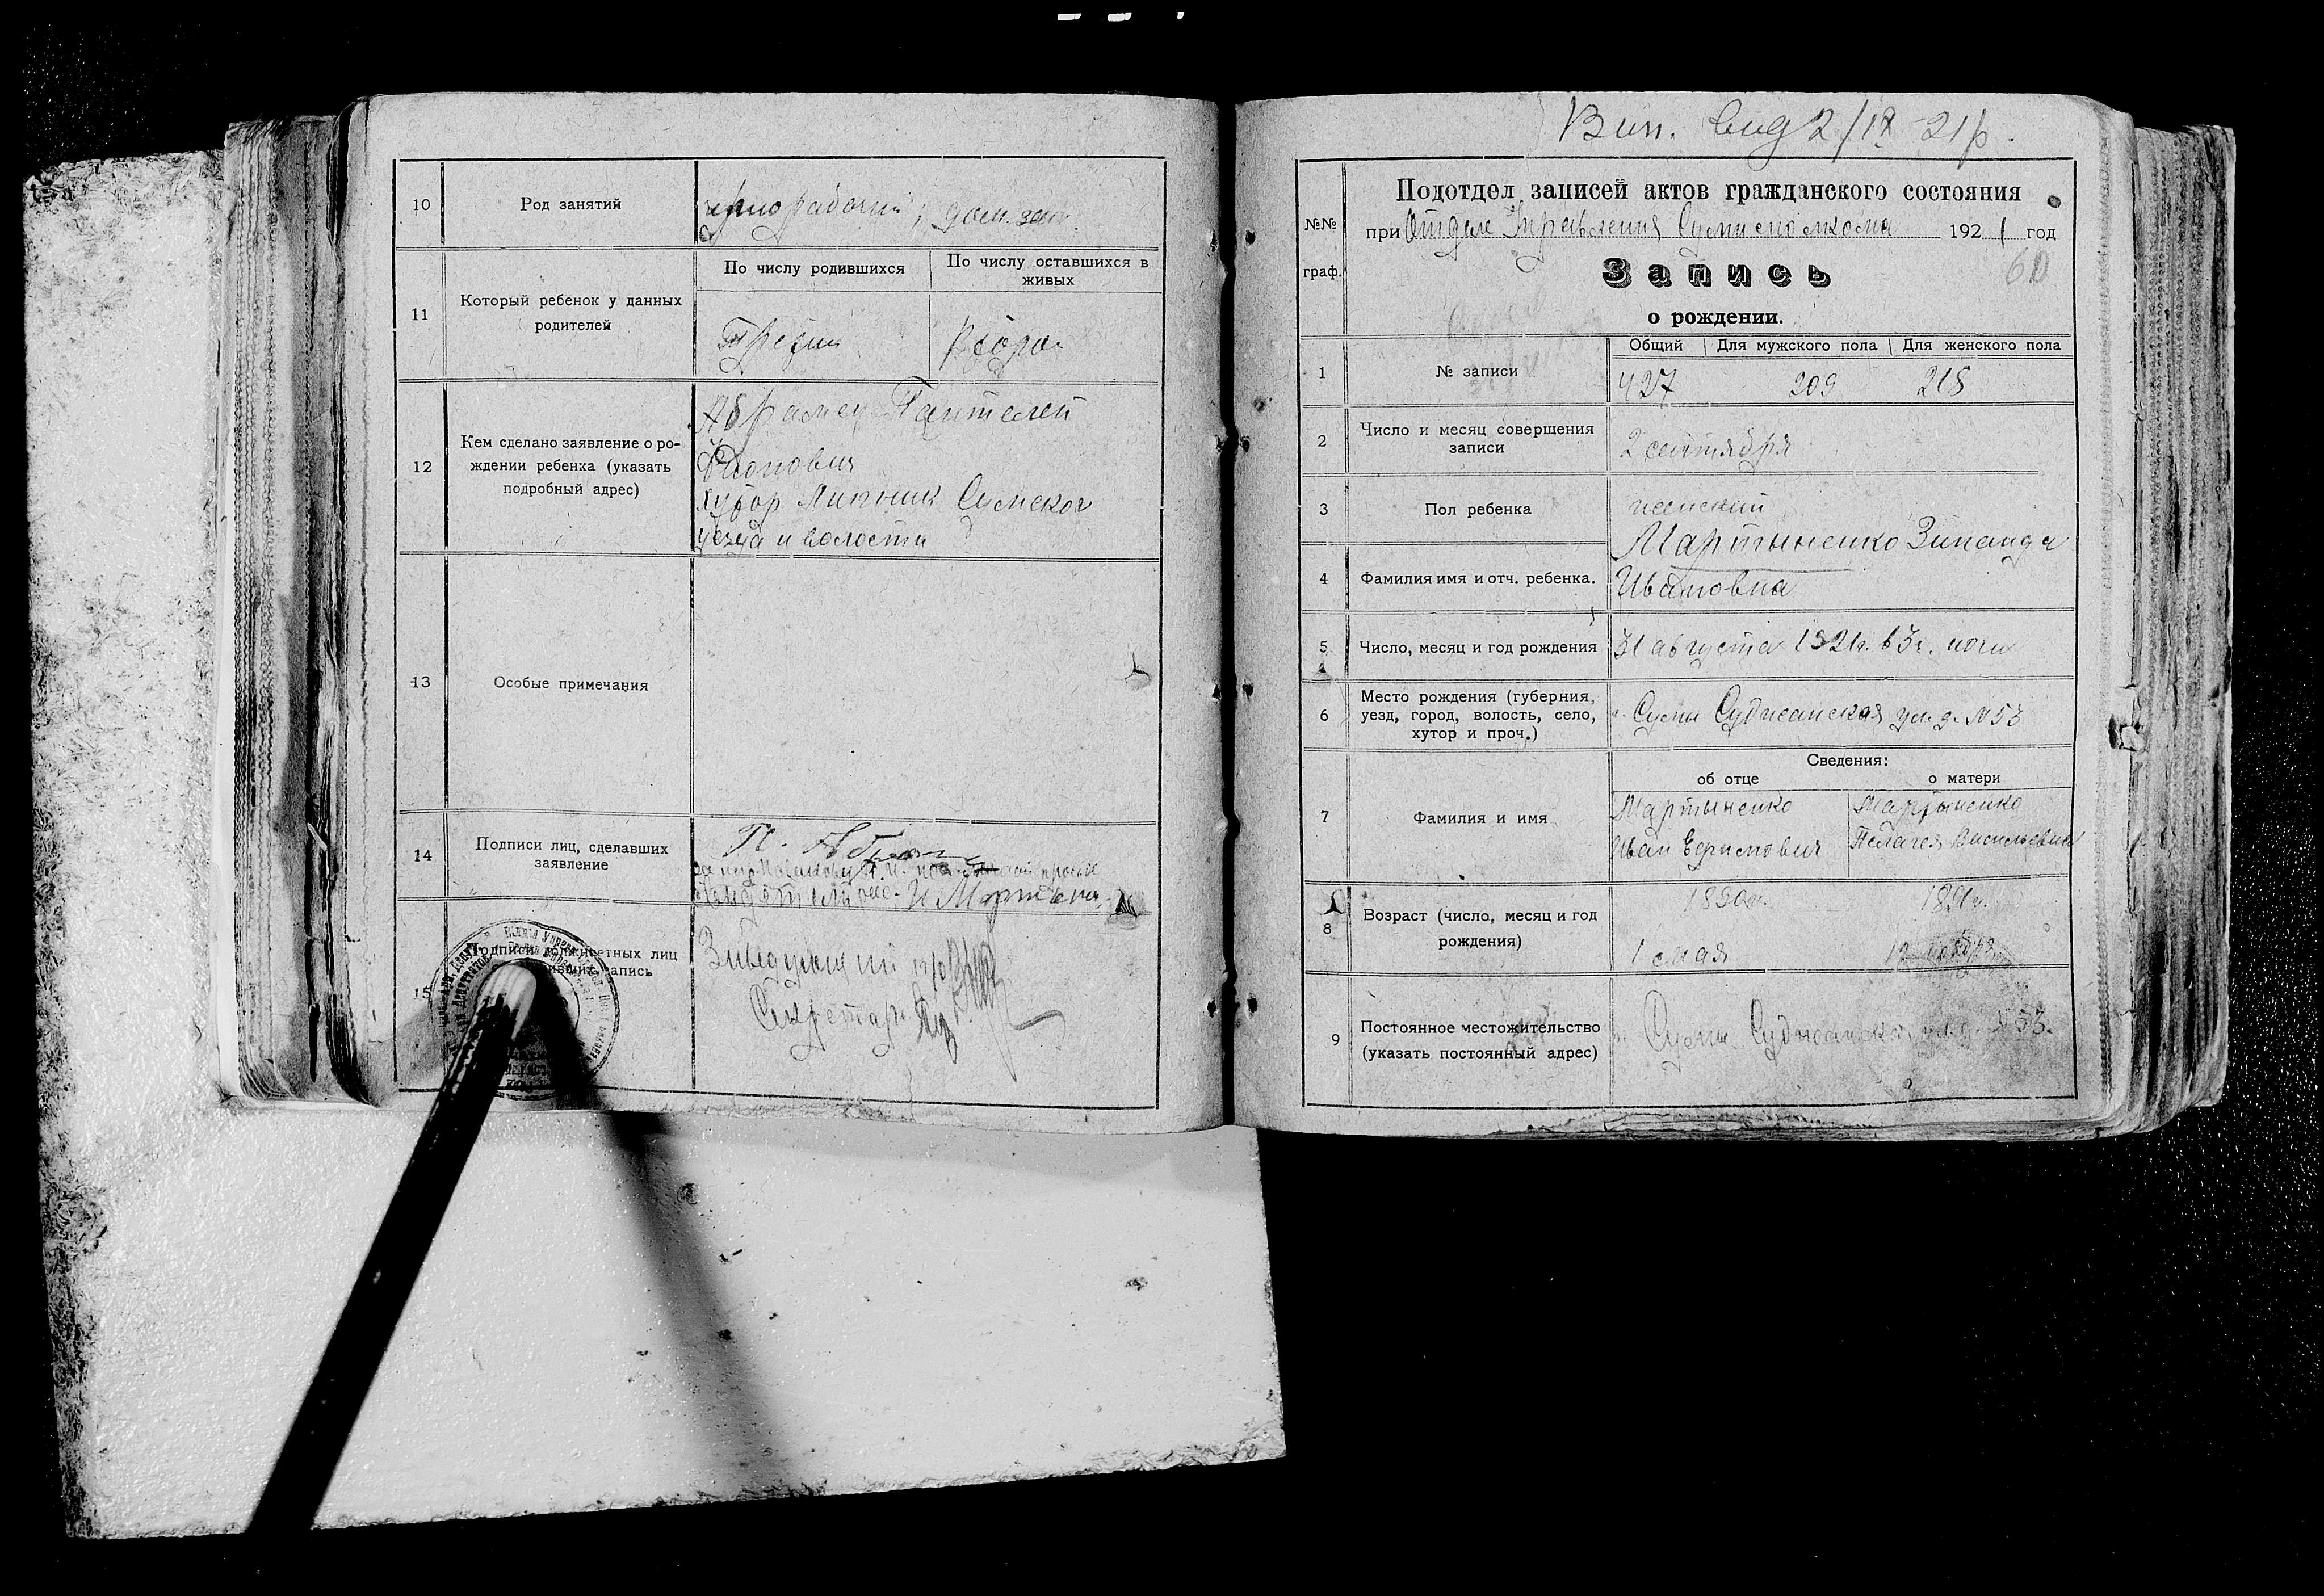 10
Род занятий
чернорабочий; дом. зан.
11
Который ребенок у данных
родителей
По числу родившихся
По числу оставшихся в
живых
12
Кем сделано заявление о ро-
ждении ребенка (указать
подробный адрес)
Пантелей
хутор Сумского
уезда и волости
13
Особые примечания
14
Подписи лиц, сделавших
заявление
15
Подписи должностных лиц
запись
Заведующий
Секретарь
Вип. вид 2/IX 21р.
№№
граф.
Подотдел записей актов гражданского состояния
при Отделе Управления Сумисполкома 1921 год
60
Запись
о рождении.
1
№ записи
Общий
Для мужского пола
Для женского пола
427
209
218
2
Число и месяц совершения
записи
2 сентября
3
Пол ребенка
женский
4
Фамилия имя и отч. ребенка.
Мартыненко Зинаида
Ивановна
5
Число, месяц и год рождения
31 августа 1921г. в 3ч. ночи
6
Место рождения (губерния,
уезд, город, волость, село,
хутор и проч.)
г. Сумы Суджанская ул. д. №53
Сведения:
об отце
о матери
7
Фамилия и имя
Мартыненко
Иван
Мартыненко
Пелагея Васильевна
8
Возраст (число, месяц и год
рождения)
1 мая
9
Постоянное местожительство
(указать постоянный адрес)
г. Сумы Суджанская ул. д. №53.